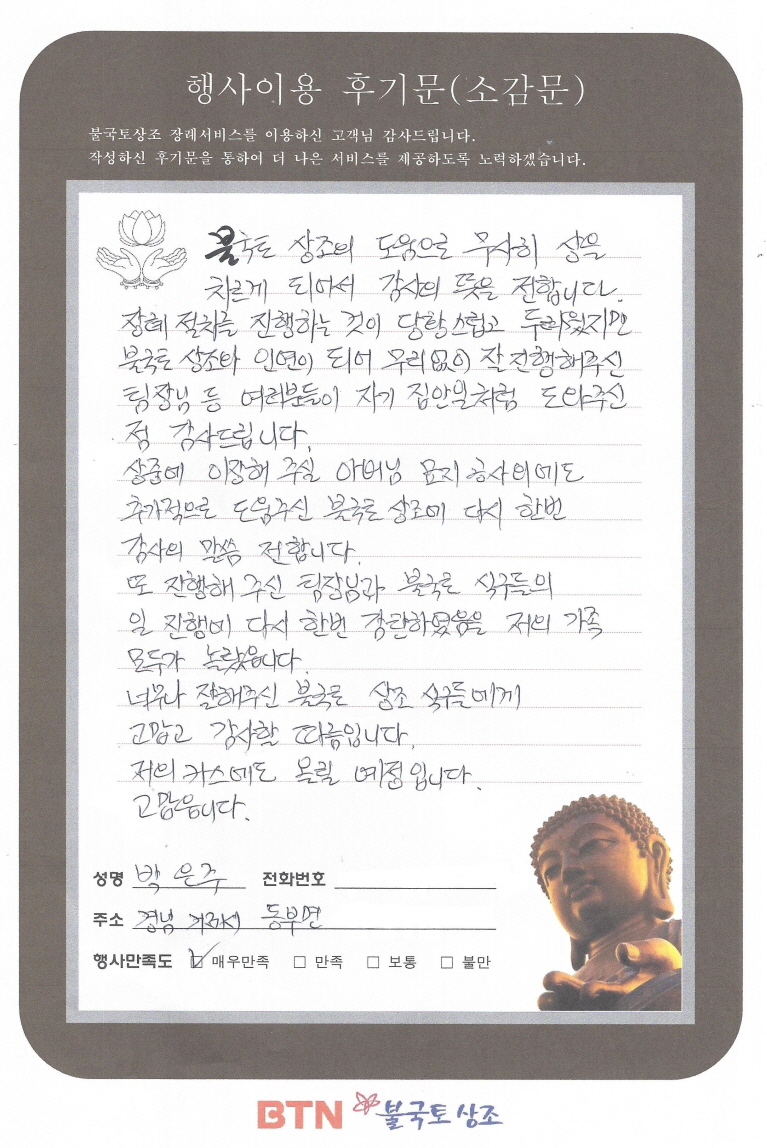 행사이용 후기문(소감문)
불국토상조 장례서비스를 이용하신 고객님 감사드립니다.
작성하신 후기문을 통하여 더 나은 서비스를 제공하도록 노력하겠습니다.
불국토 상조의 도움으로 무사히 상을
치르게 되어서 감사의 뜻을 전합니다.
장례 절차를 진행하는 것이 당황스럽고 두려웠지만
불국토 상조와 인연이 되어 무리없이 잘 진행해주신
팀장님 등 여러분들이 자기 집안일처럼 도와주신
점 감사드립니다.
상중에 이장해 주실 아버님 묘지 공사외에도
추가적으로 도움주신 불국토 상조에 다시 한번
감사의 말씀 전합니다.
또 진행해 주신 팀장님과 불국토 식구들의
일 진행에 다시 한번 감탄하였음을 저의 가족
모두가 놀랐읍니다.
너무나 잘해주신 불국토 상조 식구들에게
고맙고 감사할 따름입니다.
저의 카스에도 올릴 예정입니다.
고맙읍니다.
성명 박은주 전화번호
주소 경남 거제시 동부면
행사만족도 매우만족 만족 보통 불만
BTN 불국토상조